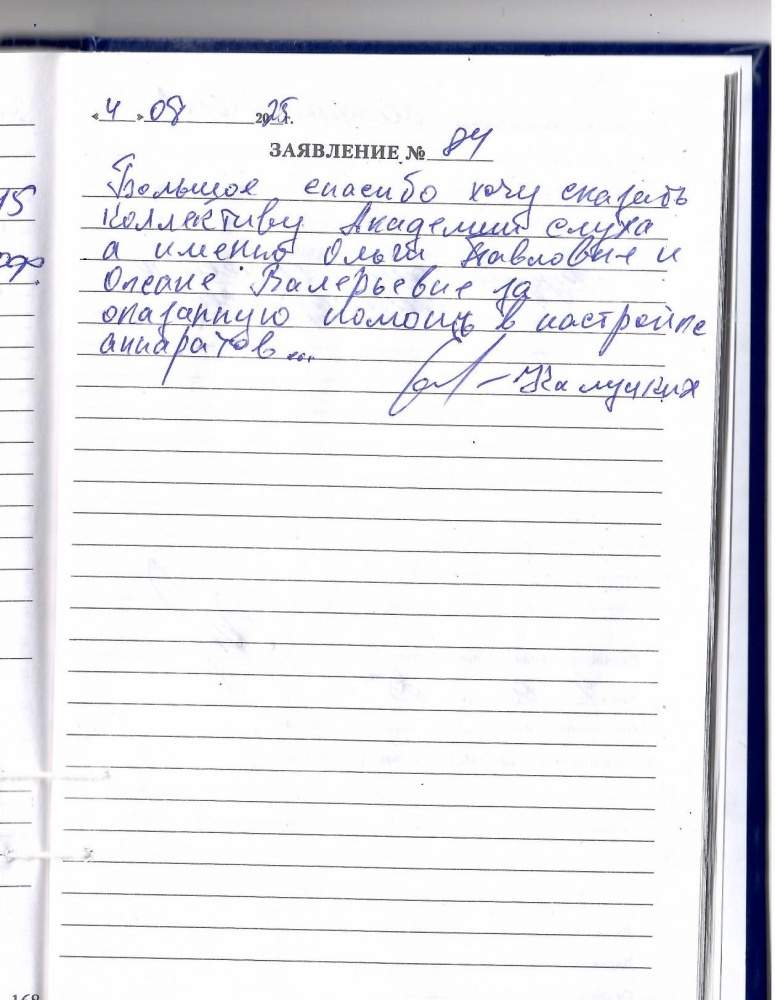 15
«4» 08 2025г.
ЗАЯВЛЕНИЕ № 84
Большое спасибо хочу сказать
коллективу Академии слуха
а именно Ольги Павловне и
Оксане Валерьевне за
оказанную помощь в настройке
аппаратов...
Калуцких
168